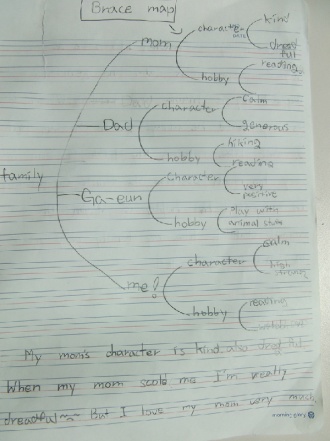 Brace map
family
mom
character
kind
dread ful
hobby
reading
Dad
character
calm
generous
hobby
hiking
reading
Ga-eun
character
very positive
hobby
play with
animal
me!
character
calm
hobby
reading
My mom's character is kind. also
When my mom scold me I'm really
dreadful~~ But I love my mom very much